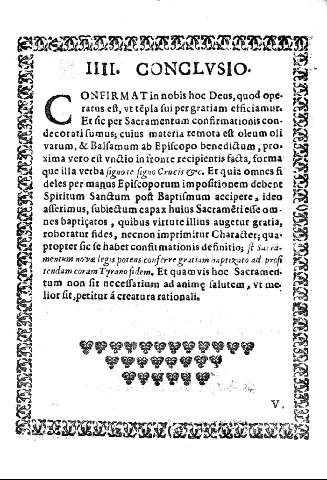 IIII. CONCLVSIO.
CONFIRMAT in nobis hoc Deus, quod ope-
ratus est, vt tẽpla sui per gratiam efficiamur.
Et sic per Sacramentum confirmationis con-
decorati sumus; cuius materia remota est oleum oli
varum, & Balsamum ab Episcopo benedictum, pro-
xima vero est vnctio in fronte recipientis facta, forma
que illa verba signo te signo Crucis &c. Et quia omnes fi
deles per manus Episcoporum impositionem debent
Spiritum Sanctum post Baptismum accipere, ideo
asserimus, subiectum capax huius Sacramẽti esse om-
nes baptiçatos, quibus virtute illius augetur gratia,
roboratur fides, necnon imprimitur Character; qua-
propter sic se habet confirmationis definitio; est Sacra-
mentum novæ legis potens conferre gratiam baptizato ad profi
tendam coram Tyrano fidem. Et quamvis hoc Sacramen-
tum non sit necessarium ad animę salutem, vt me-
lior sit, petitur á creatura rationali.
V.